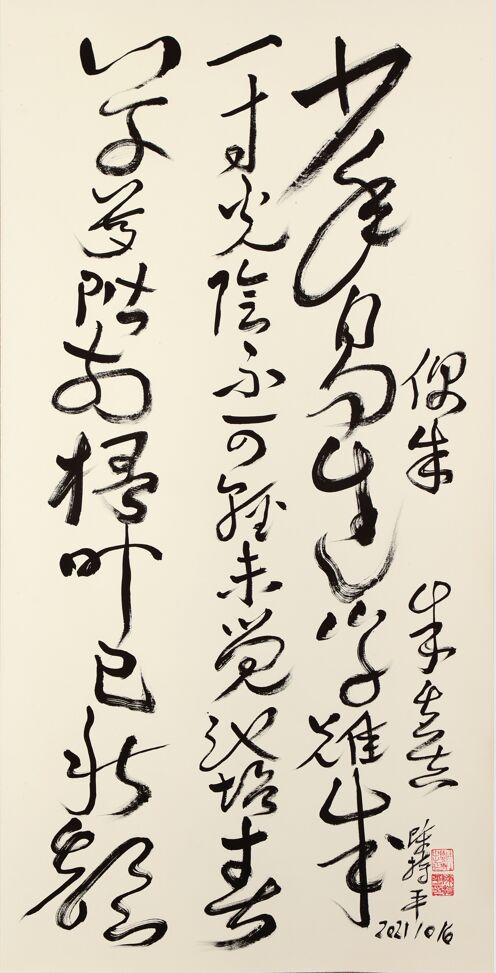 偶成 朱熹
少年易老学難成
一寸光陰不可輕未觉池塘春
草夢階前梧叶已秋聲
陈持平
2021 10 16